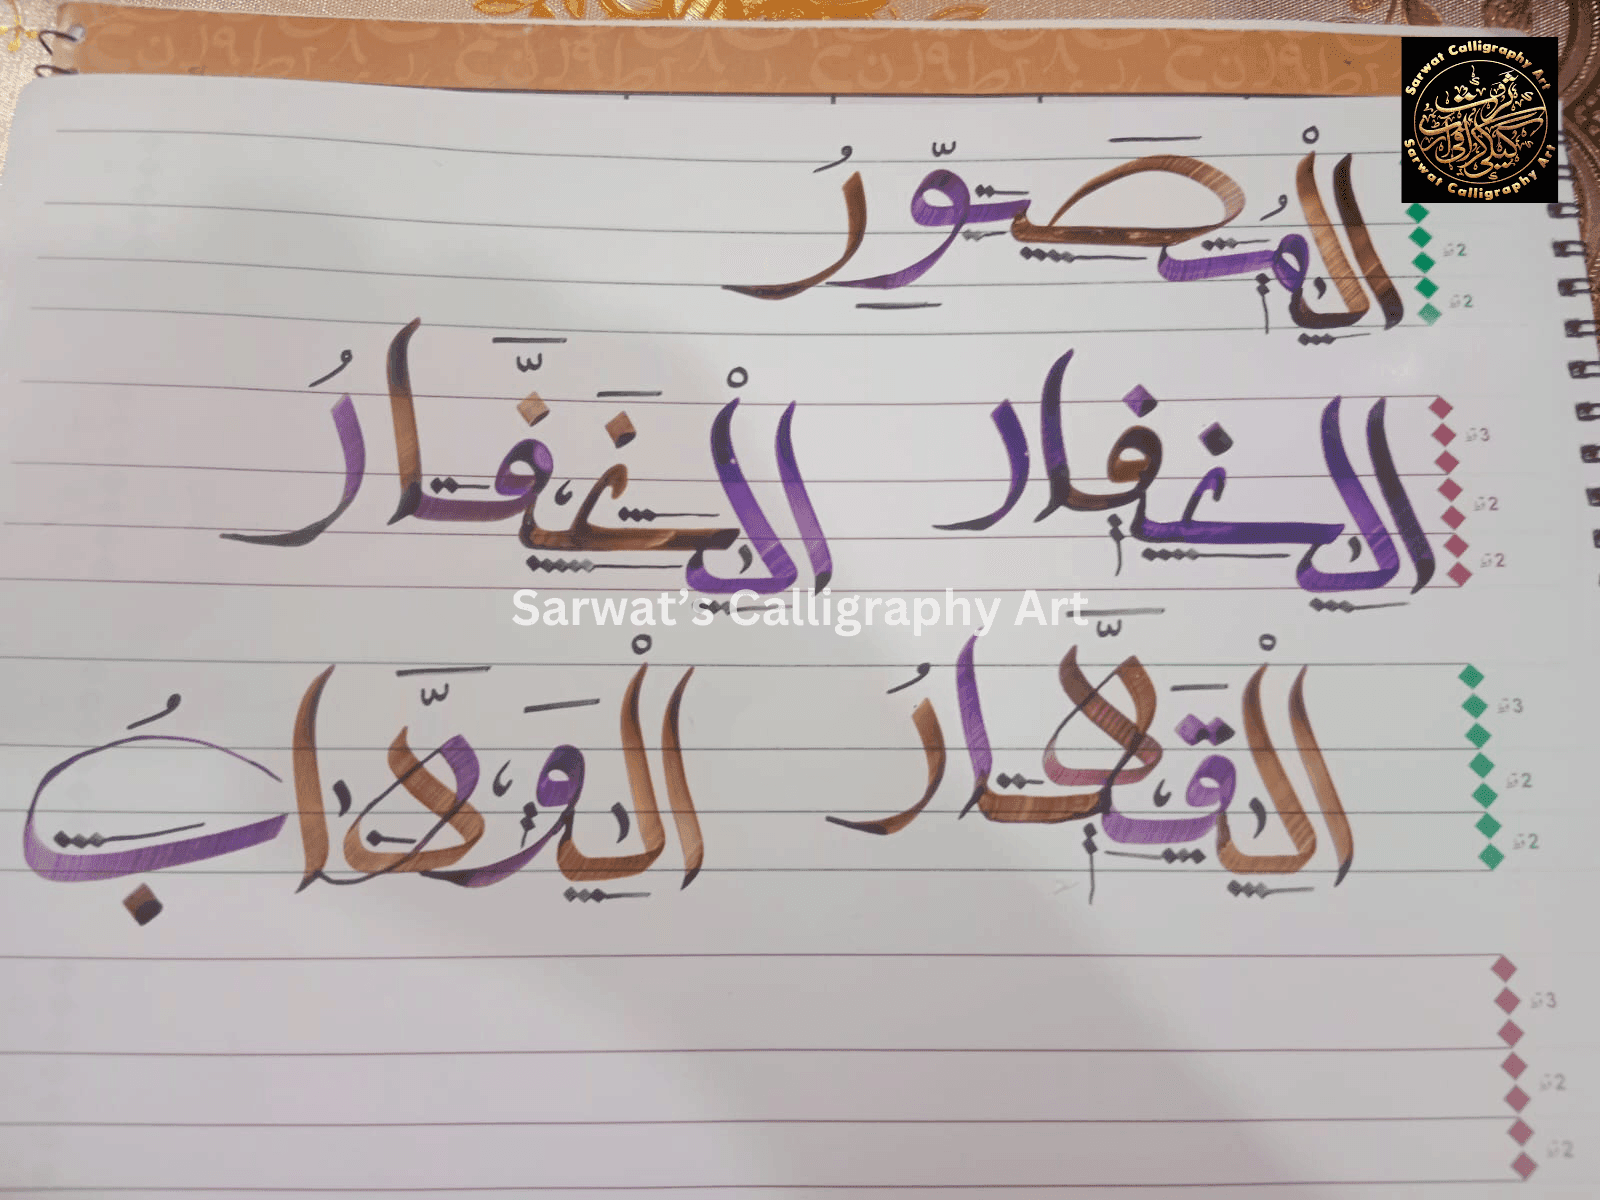 Sarwat Calligraphy Art
ثروت کیلیگرافی آرٹ
Sarwat Calligraphy Art
الْمُصَوِّرُ
2ق
2ق
الغفار الْغَفَّارُ
3ق
2ق
2ق
Sarwat's Calligraphy Art
الْقَهَّارُ الْوَهَّابُ
3ق
2ق
2ق
3ق
2ق
2ق